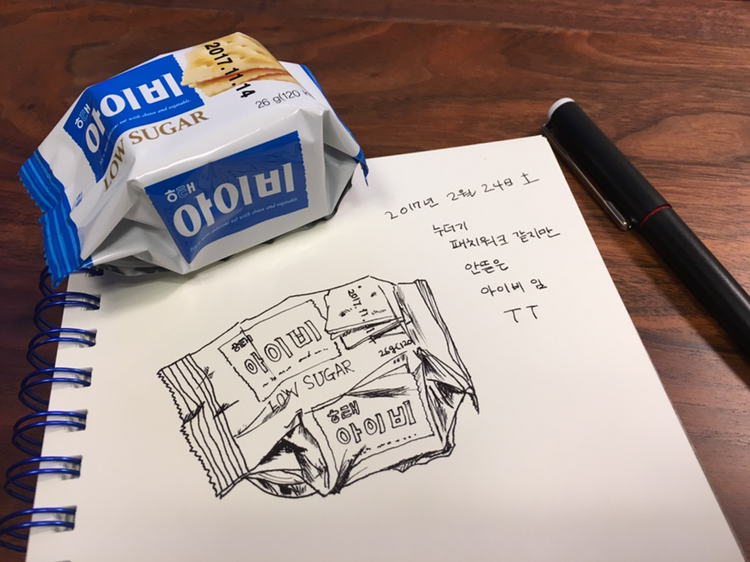 2017.11.14
26 g(120 k
해태
아이비
LOW SUGAR
해태
아이비
2017년 2월 24일 토
누더기
패치워크 같지만
안뜯은
아이비 임
ㅜㅜ
2017.11
해태
아이비
26g(120
LOW SUGAR
해태
아이비